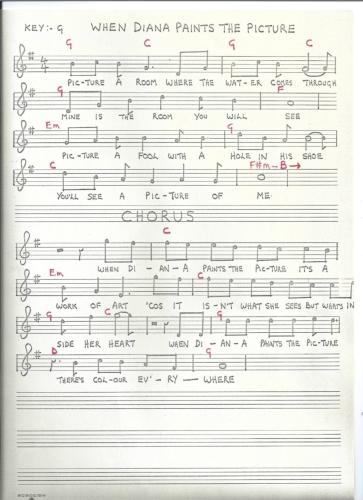 KEY:- G WHEN DIANA PAINTS THE PICTURE
G C G C
PIC-TURE A ROOM WHERE THE WAT-ER COMES THROUGH
G F
MINE IS THE ROOM YOU WILL SEE
Em G
PIC-TURE A FOOL WITH A HOLE IN HIS SHOE
C F#m-B→
YOU'LL SEE A PIC-TURE OF ME
CHORUS
C
WHEN DI-AN-A PAINTS THE PIC-TURE IT'S A
Em C
WORK OF ART 'COS IT IS-N'T WHAT SHE SEES BUT WHATS IN
G C G
SIDE HER HEART WHEN DI-AN-A PAINTS THE PIC-TURE
D G
THERE'S COL-OUR EV'-RY-WHERE